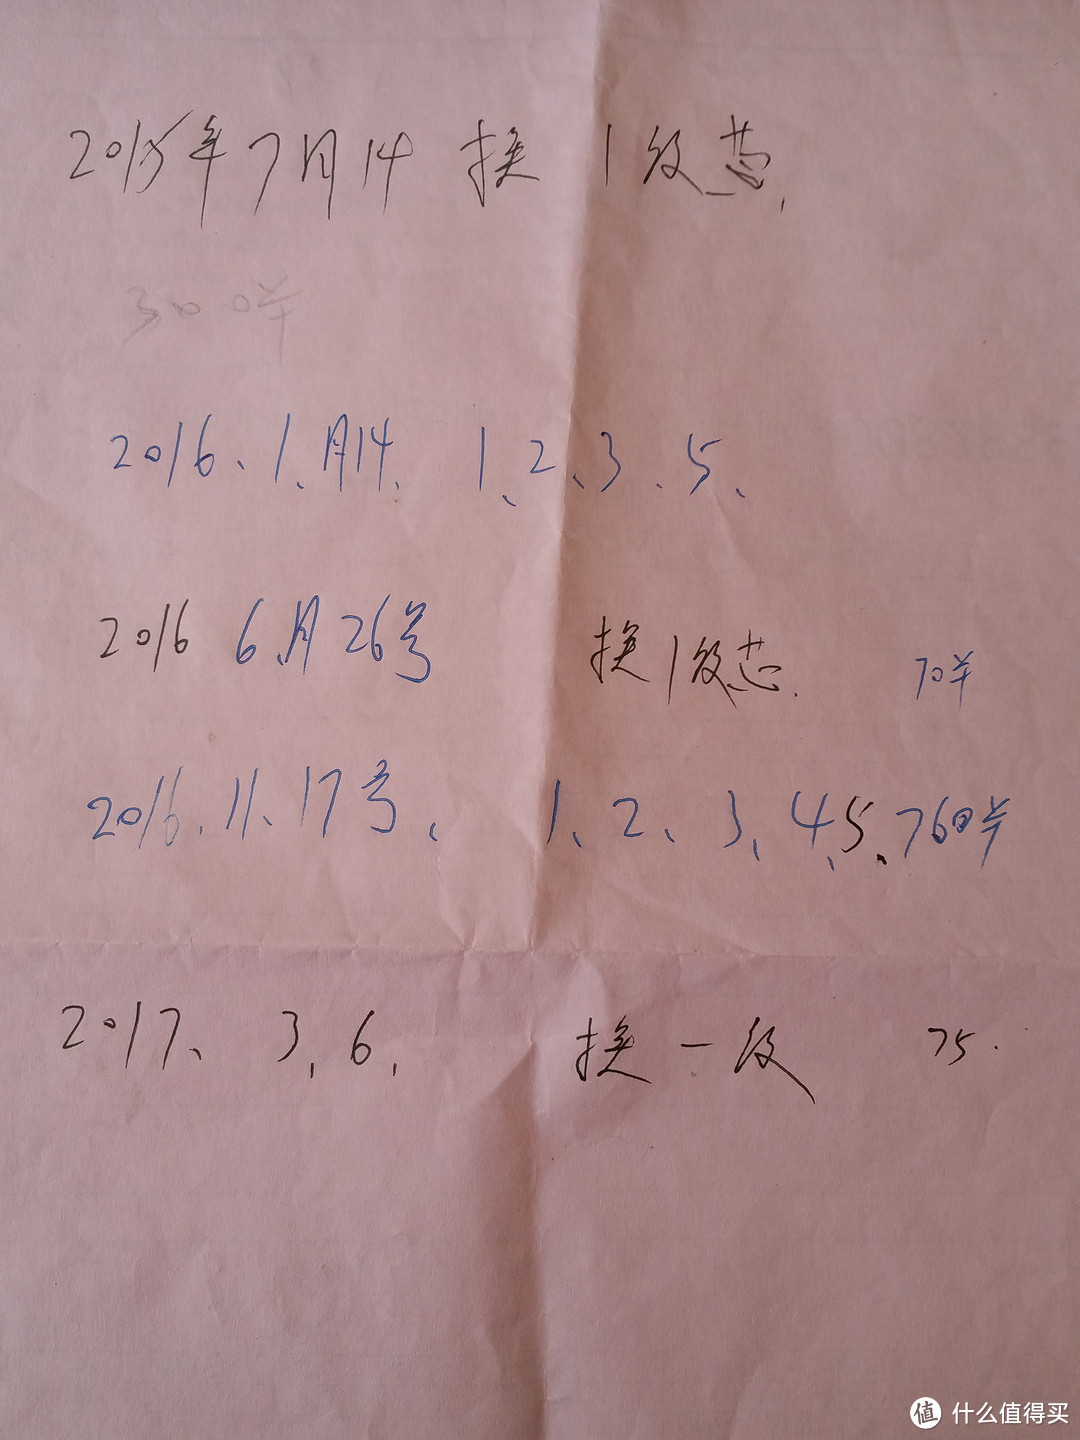 2015年7月14 换 1级芯.
300半
2016、1、月14、 1、2、3、5、
2016 6月26号 换1级芯. 70半
2016、11、17号、 1、2、3、4、5、760半
2017、 3,6, 换一级 75.
值 什么值得买